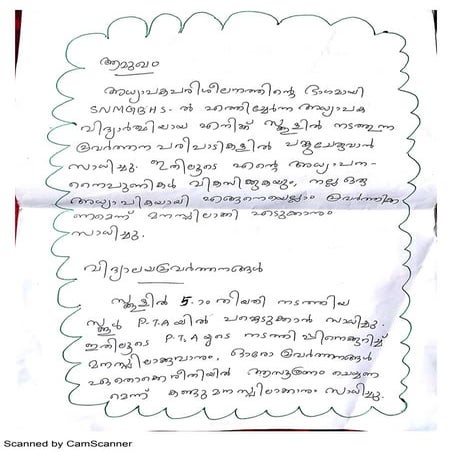 ആമുഖം
അധ്യാപകപരിശീലനത്തിന്റെ ഭാഗമായി
SNMGBHS - ൽ എത്തിച്ചേർന്ന അധ്യാപക
വിദ്യാർത്ഥിയായ എനിക്ക് സ്കൂളിൽ നടത്തുന്ന
പ്രവർത്തന പരിപാടികളിൽ പങ്കുചേരുവാൻ
സാധിച്ചു. ഇതിലൂടെ എന്റെ അധ്യാപന-
നൈപുണികൾ വികസിക്കുകയും, നല്ല ഒരു
അധ്യാപികയായി എങ്ങനെയെല്ലാം പ്രവർത്തിക്ക
ണമെന്ന് മനസ്സിലാക്കി എടുക്കാനും
സാധിച്ചു.
വിദ്യാലയപ്രവർത്തനങ്ങൾ
സ്കൂളിൽ 5-ാം തിയതി നടത്തിയ
സ്കൂൾ P.T.A യിൽ പങ്കെടുക്കാൻ സാധിച്ചു.
ഇതിലൂടെ P.T.A യുടെ നടത്തിപ്പിനെക്കുറിച്ച്
മനസ്സിലാക്കുവാനും, ഓരോ പ്രവർത്തനങ്ങൾ
ഏതൊക്കെ രീതിയിൽ ആസൂത്രണം ചെയ്യണ
മെന്ന് കണ്ടു മനസ്സിലാക്കാനും സാധിച്ചു.
Scanned by CamScanner